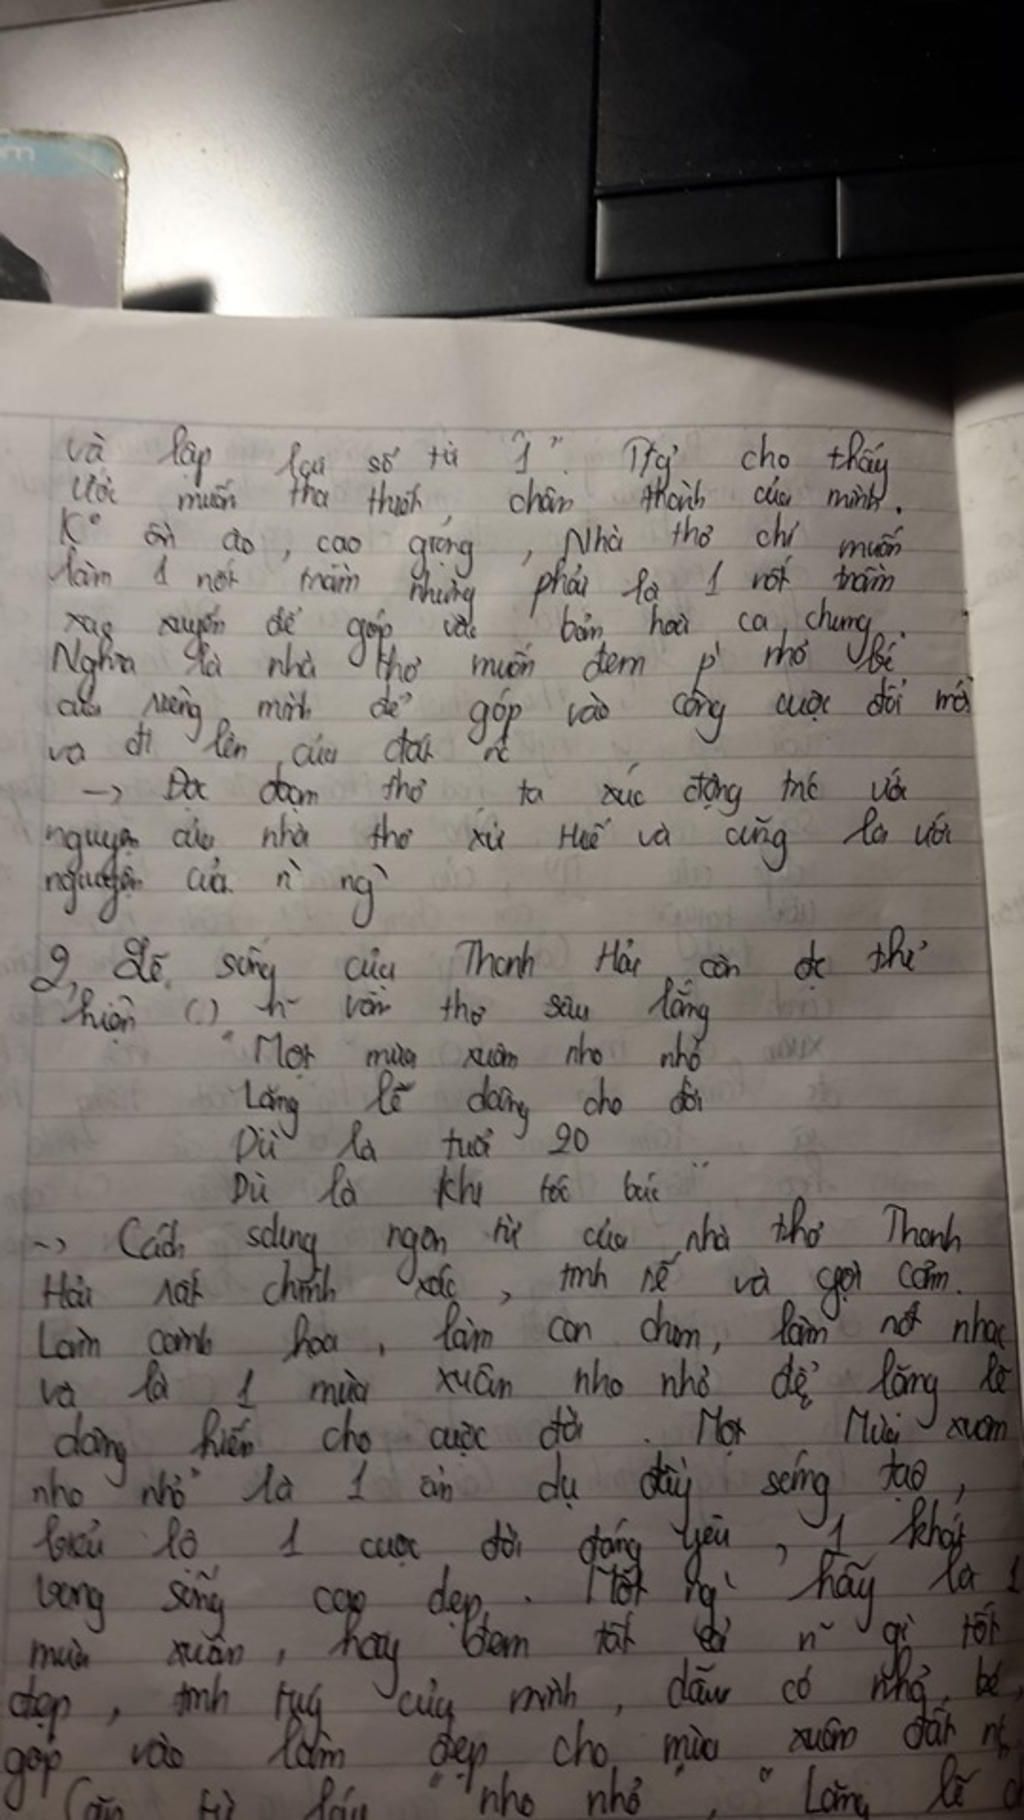 m
và lặp lại số từ "1". Tgỉ cho thấy
ước muốn tha thiết, chân thành của mình.
K° ồn ào, cao giọng, Nhà thơ chỉ muốn
làm 1 nốt trầm nhưng phải là 1 nốt trầm
xao xuyến để góp vào bản hoà ca chung.
Nghĩa là nhà thơ muốn đem p' nhỏ bé
của riêng mình để góp vào công cuộc đổi mới
và đi lên của đất nc
-> Đọc đoạm thơ, ta xúc động trc ước
nguyện của nhà thơ xứ Huế và cũng là ước
nguyện của n` ng`
2, Lẽ sống của Thanh Hải còn đc thể
hiện () n~ vần thơ sâu lắng
"Một mùa xuân nho nhỏ
Lặng lẽ dâng cho đời
Dù là tuổi 20
Dù là khi tóc bạc"
-> Cách sdụng ngôn từ của nhà thơ Thanh
Hải rất chính xác, tinh tế và gợi cảm.
Làm cành hoa, làm con chim, làm nốt nhạc
và là 1 mùa xuân nho nhỏ để lặng lẽ
dâng hiến cho cuộc đời. Một Mùa xuân
nho nhỏ" là 1 ẩn dụ đầy sáng tạo,
biểu lộ 1 cuộc đời đáng yêu, 1 khát
vọng sống cao đẹp. Mỗi ng` hãy là 1
mùa xuân, hãy đem tất cả n~ gì tốt
đẹp, tinh tuý của mình, dẫu có nhỏ bé,
góp vào làm đẹp cho mùa xuân đất nc
Cặp từ láy "nho nhỏ", "Lặng lẽ